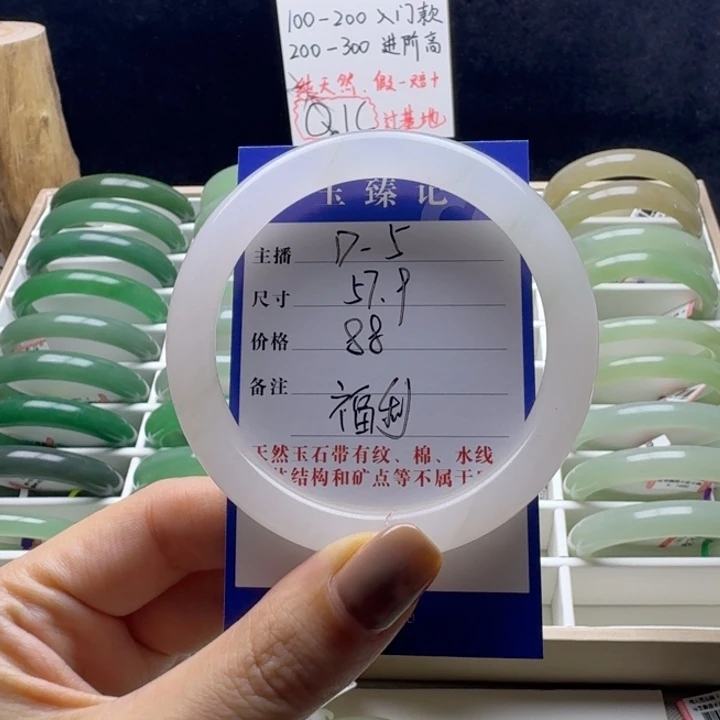 100-200 入门款
200-300 进阶高
纯天然.假一赔十
QIC 过基地
玉臻记
主播 D-5
尺寸 57.9
价格 88
备注 福利
天然玉石带有纹、棉、水线
结构和矿点等不属于